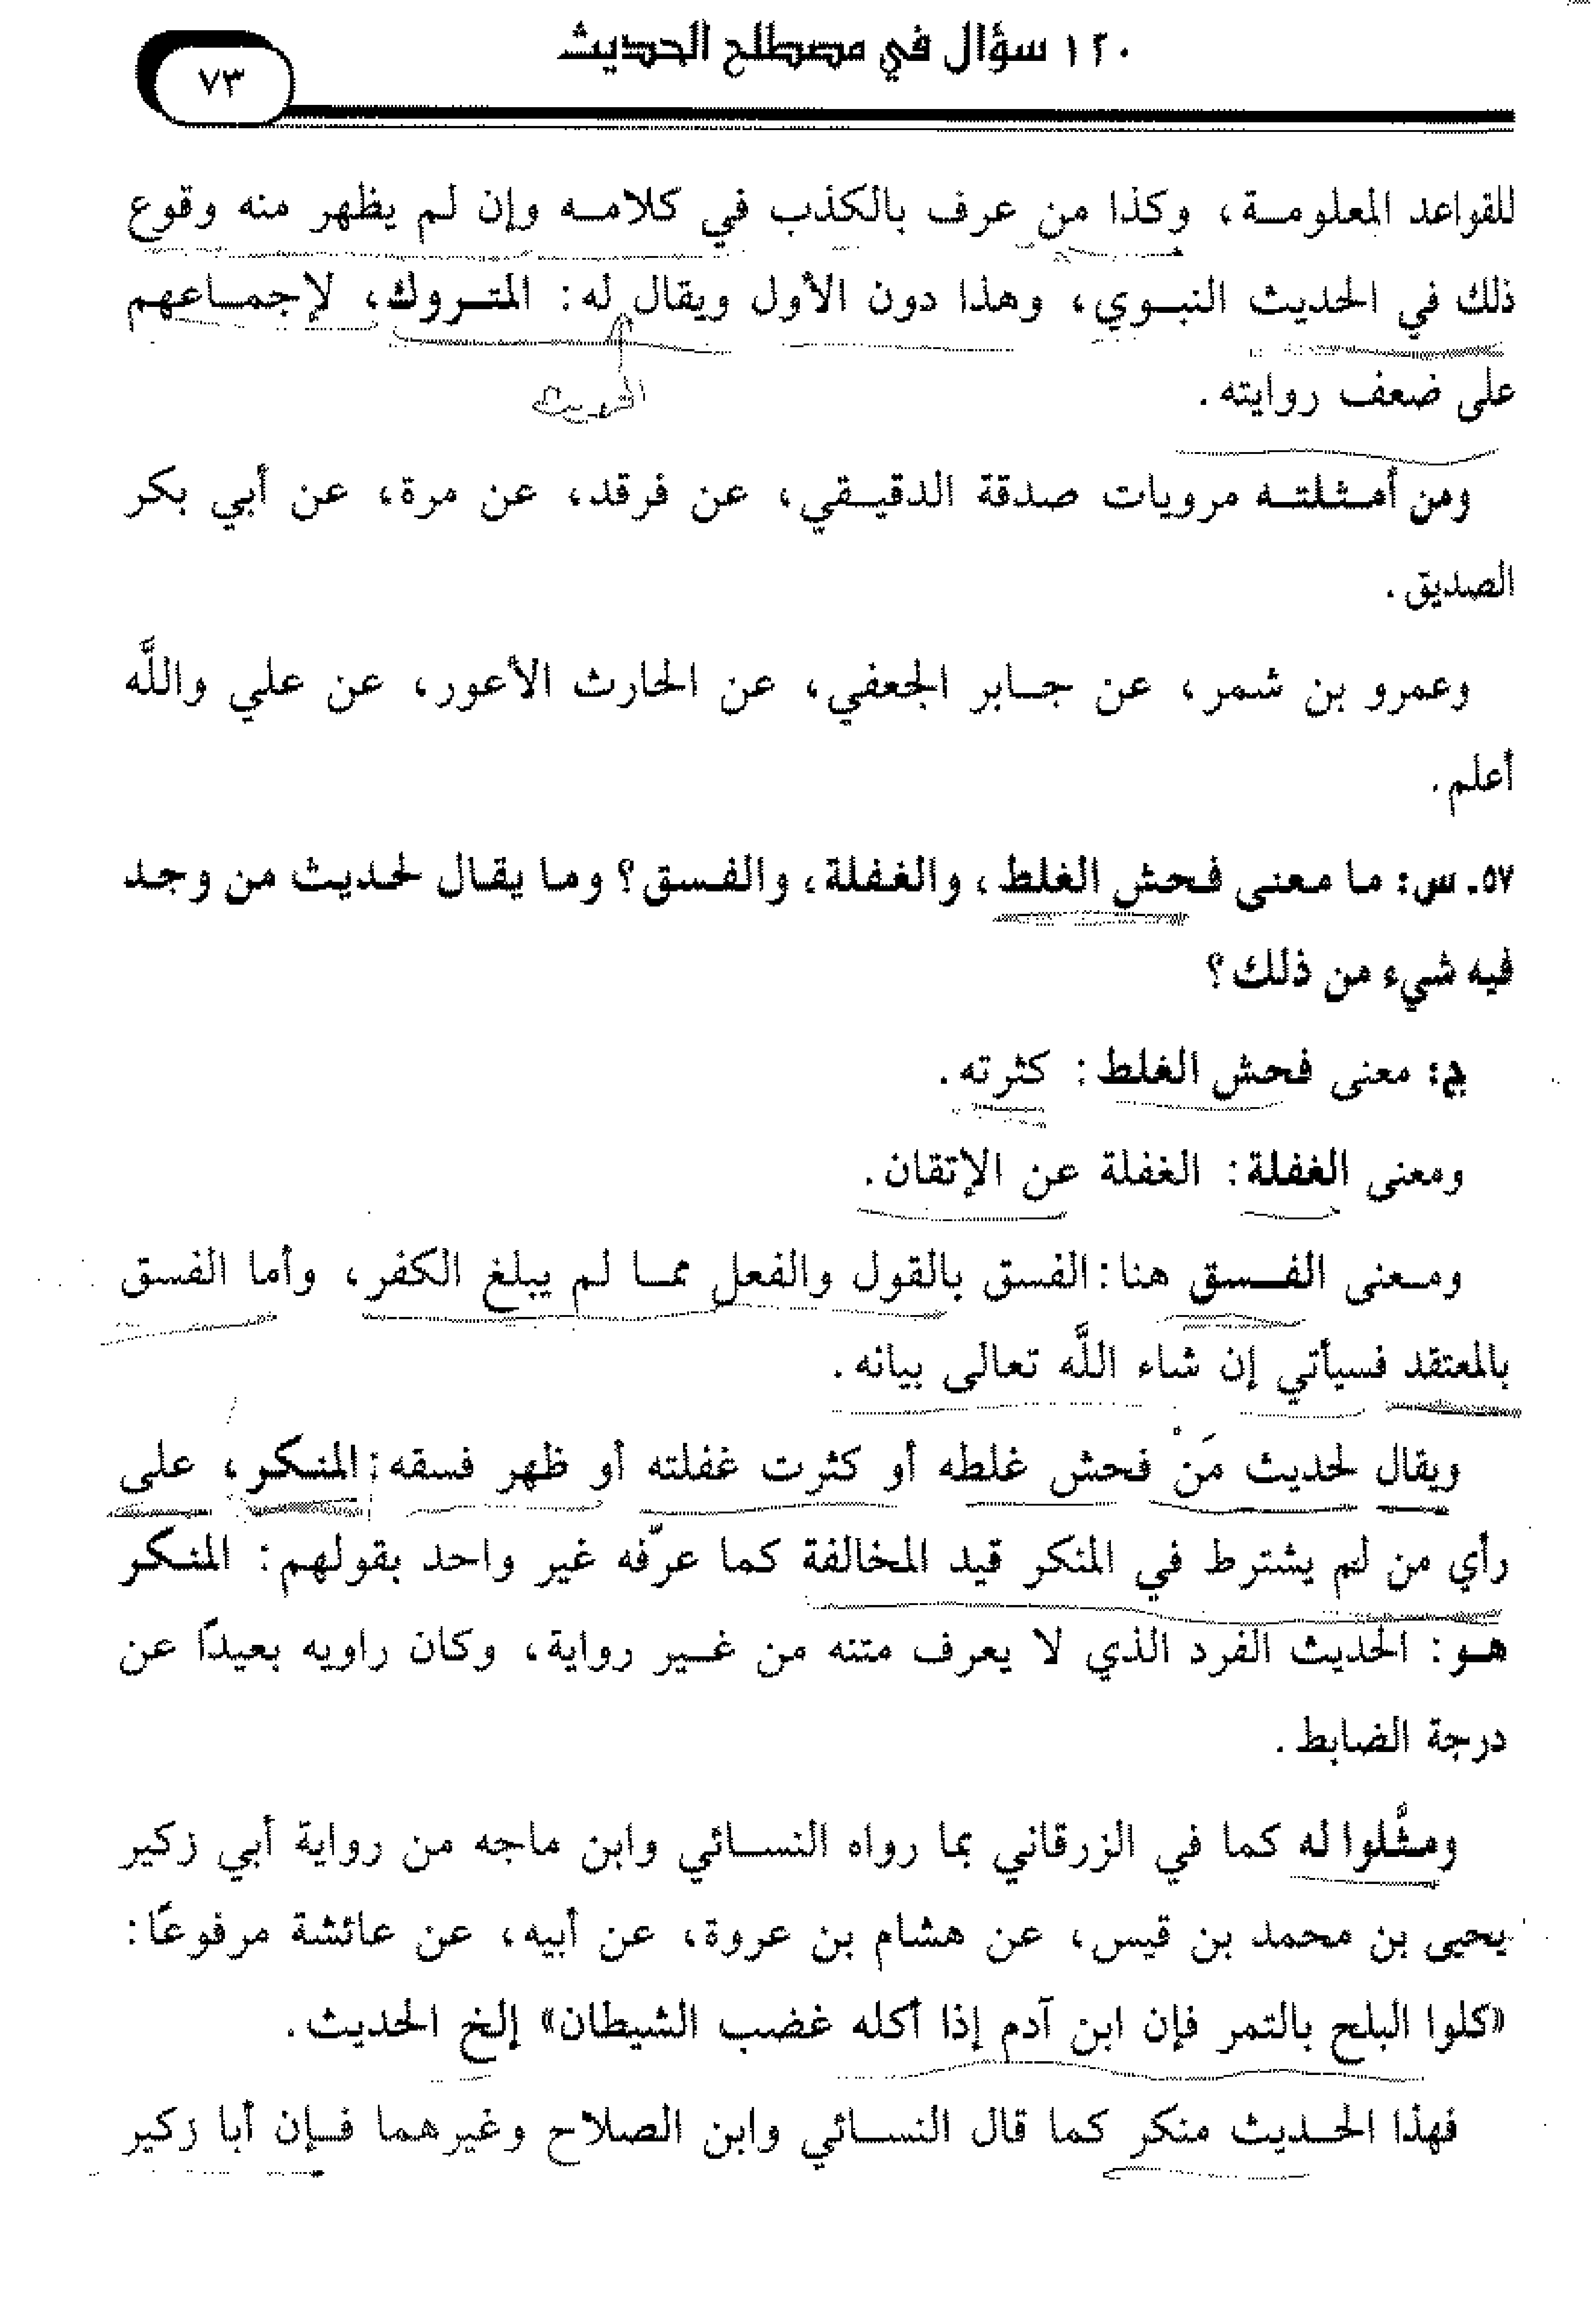 ١٢٠ سؤال في مصطلح الحديث
٧٣
للقواعد المعلومة، وكذا من عرف بالكذب في كلامه وإن لم يظهر منه وقوع
ذلك في الحديث النبوي، وهذا دون الأول ويقال له: المتروك، لإجماعهم
على ضعف روايته.
ومن أمثلته مرويات صدقة الدقيقي، عن فرقد، عن مرة، عن أبي بكر
الصديق.
وعمرو بن شمر، عن جابر الجعفي، عن الحارث الأعور، عن علي واللَّه
أعلم.
٥٧. س: ما معنى فحش الغلط، والغفلة، والفسق؟ وما يقال لحديث من وجد
فيه شيء من ذلك؟
ج: معنى فحش الغلط: كثرته.
ومعنى الغفلة: الغفلة عن الإتقان.
ومعنى الفسق هنا: الفسق بالقول والفعل مما لم يبلغ الكفر، وأما الفسق
بالمعتقد فسيأتي إن شاء اللَّه تعالى بيانه.
ويقال لحديث مَنْ فحش غلطه أو كثرت غفلته أو ظهر فسقه: المنكر، على
رأي من لم يشترط في المنكر قيد المخالفة كما عرّفه غير واحد بقولهم: المنكر
هو: الحديث الفرد الذي لا يعرف متنه من غير رواية، وكان راويه بعيدًا عن
درجة الضابط.
ومثَّلوا له كما في الزرقاني بما رواه النسائي وابن ماجه من رواية أبي زكير
يحيى بن محمد بن قيس، عن هشام بن عروة، عن أبيه، عن عائشة مرفوعًا:
«كلوا البلح بالتمر فإن ابن آدم إذا أكله غضب الشيطان» إلخ الحديث.
فهذا الحديث منكر كما قال النسائي وابن الصلاح وغيرهما فإن أبا زكير